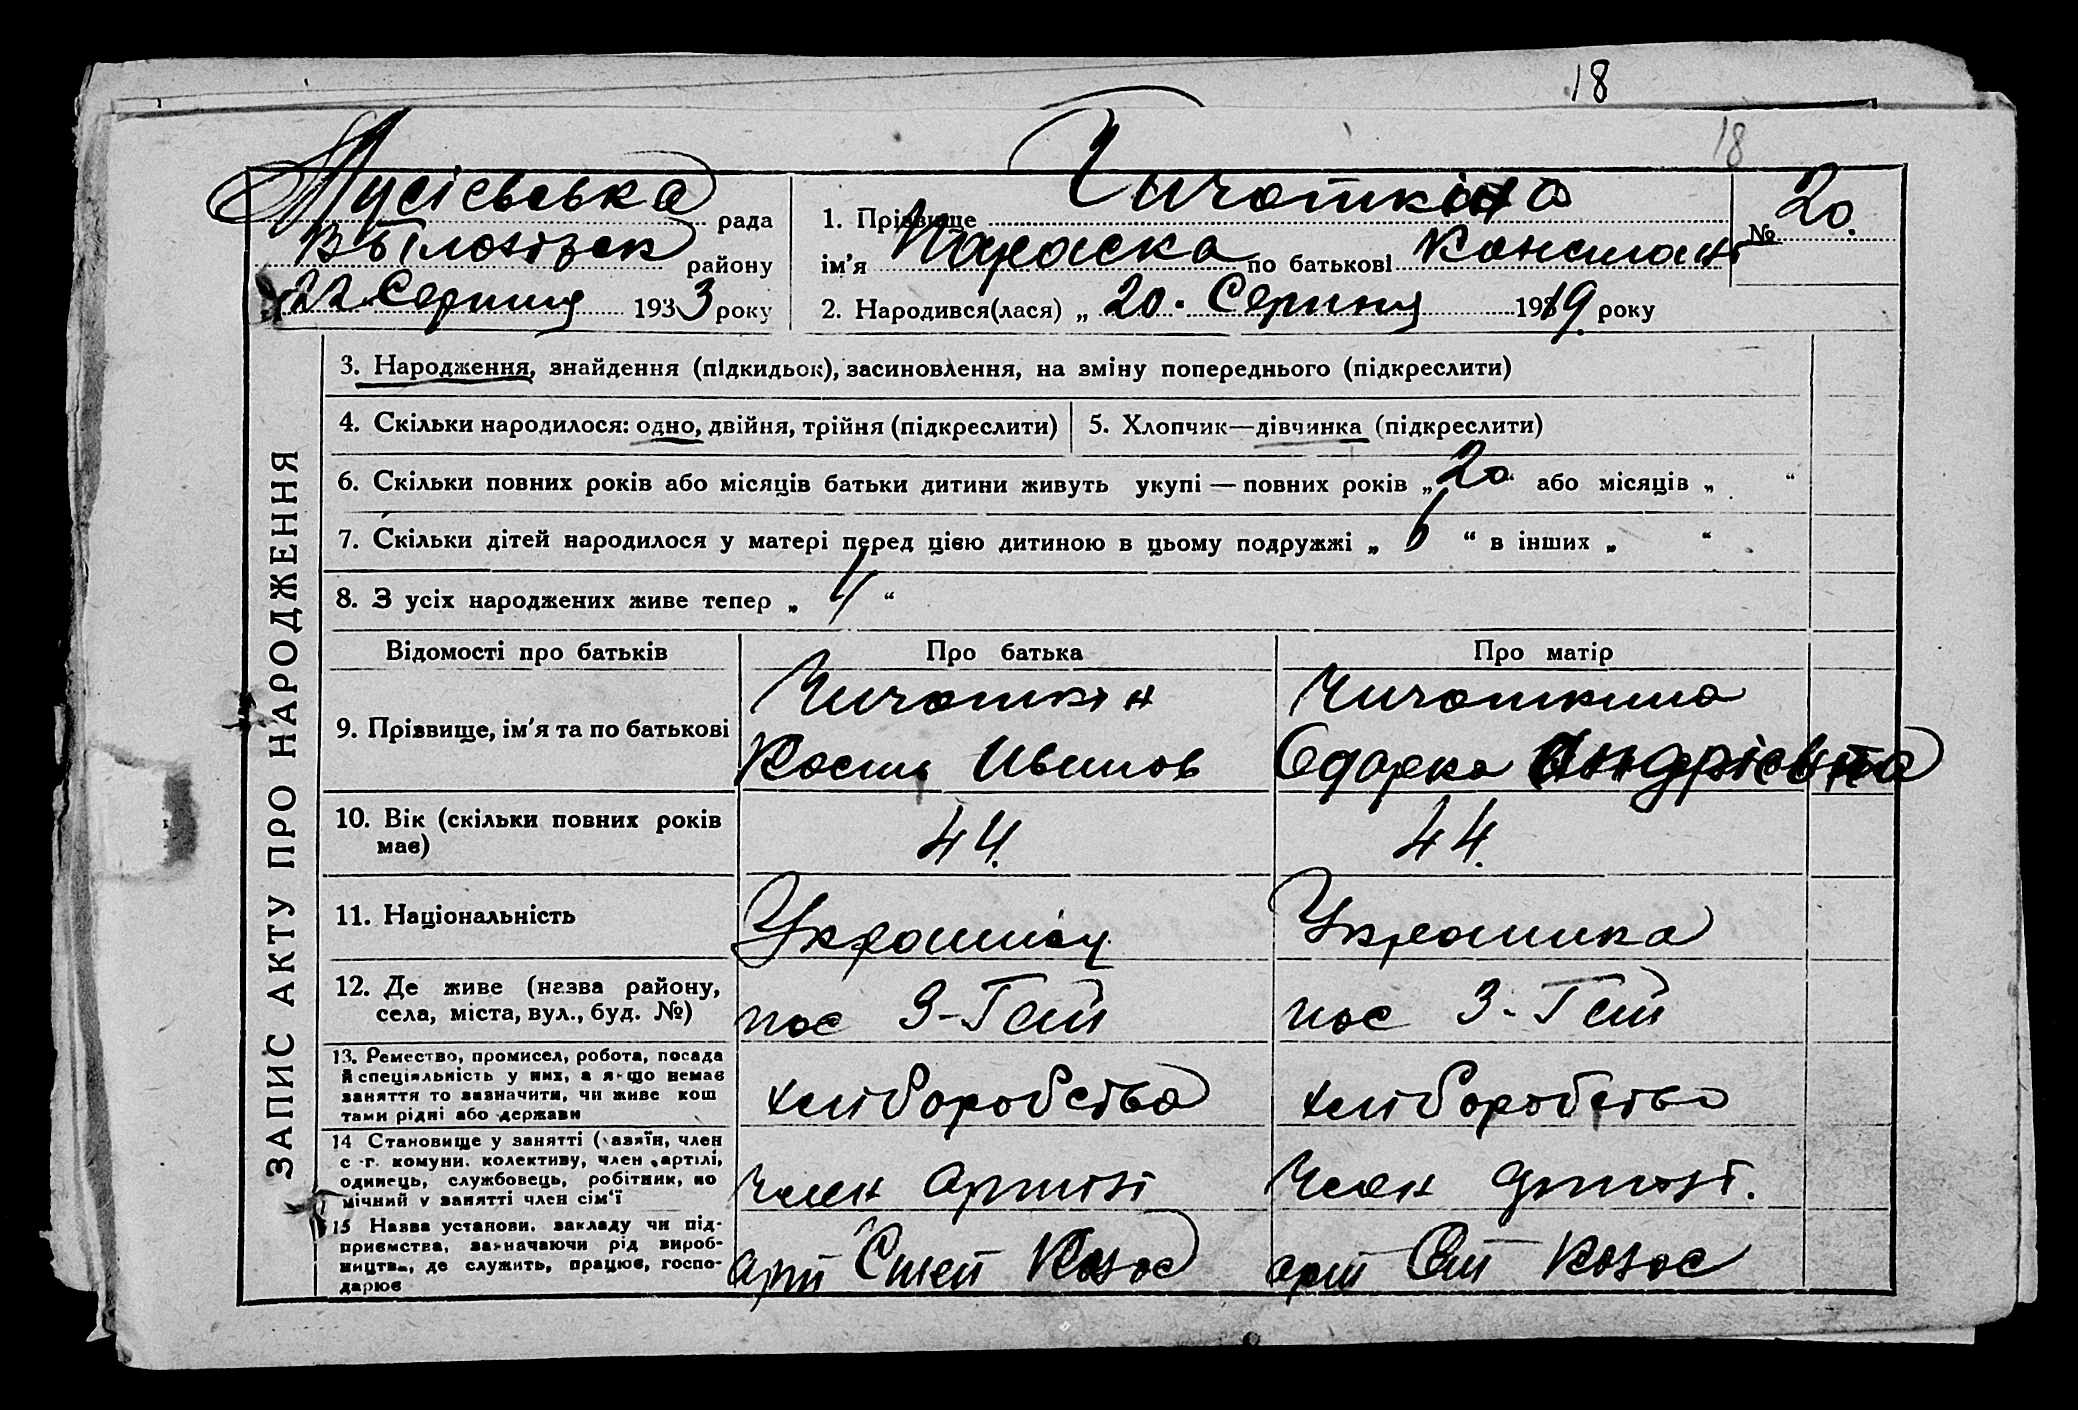 18
18
Мусіевська рада
В Білозірськ району
22 Серпня 1933 року
1. Прізвище Чичоткіна
ім'я Параска по батькові Констант
2. Народився(лася) „ 20. Серпня 1919 року
№ 20.
ЗАПИС АКТУ ПРО НАРОДЖЕННЯ
3. Народження, знайдення (підкидьок), засиновлення, на зміну попереднього (підкреслити)
4. Скільки народилося: одно, двійня, трійня (підкреслити)
5. Хлопчик—дівчинка (підкреслити)
6. Скільки повних років або місяців батьки дитини живуть укупі — повних років „ 20 “ або місяців „ “
7. Скільки дітей народилося у матері перед цією дитиною в цьому подружжі „ 6 “ в інших „ “
8. З усіх народжених живе тепер „ 4 “
Відомості про батьків
Про батька
Про матір
9. Прізвище, ім'я та по батькові
Чичоткін
Чичоткина
Одарка Андрієвна
10. Вік (скільки повних років має)
44.
44.
11. Національність
Українец
Украинка
12. Де живе (назва району,
села, міста, вул., буд. №)
пос
пос
13. Ремество, промисел, робота, посада
й спеціяльність у них, а якщо немає
заняття то зазначити, чи живе кош
тами рідні або держави
хліборобства
хліборобство
14 Становище у занятті (хазяїн, член
с.-г. комуни. колективу, член артілі,
одинець, службовець, робітник, по
мічний у занятті член сім'ї
член артілі
член артілі.
15 Назва установи. закладу чи під-
приємства, зазначаючи рід вироб-
ництва, де служить, працює, госпо-
дарює
арт
арт